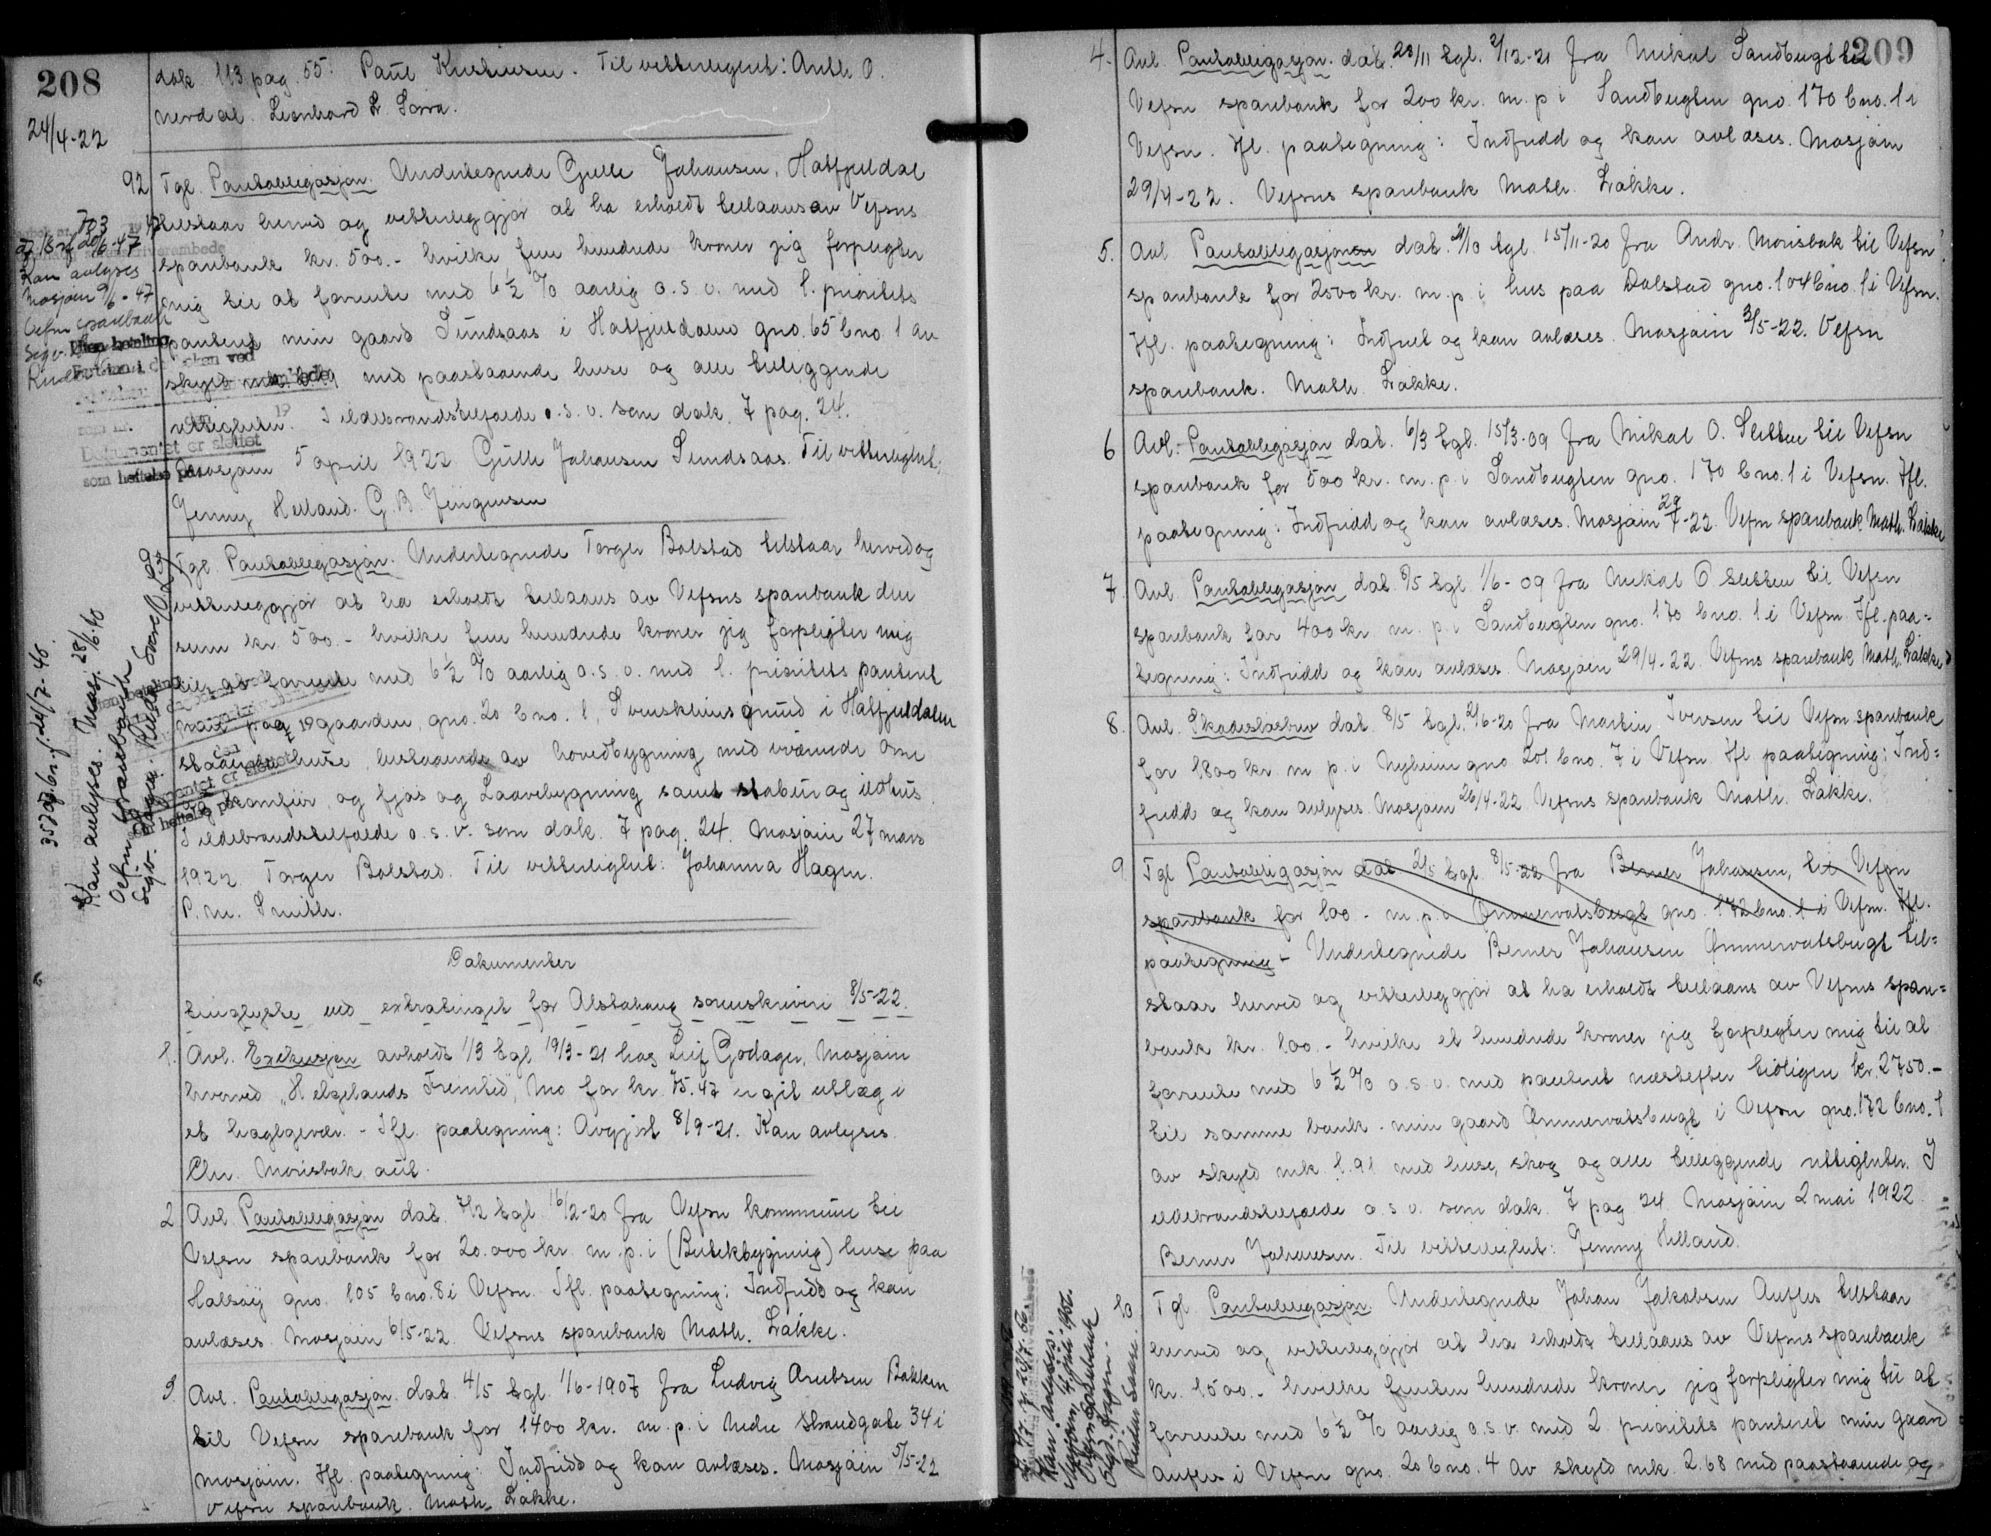 208
24/4-22
dok. 113 pag. 55. Paul Kristensen. Til vitterlighet: Anth. O.
nerdal. Leonhard
92
Tgl. Pantobligasjon. Undertegnede Gulle Johansen, Hatfjeldal
tilstaar herved og vitterliggjør at ha erholdt tillaans av Vefsns
sparebank kr. 500.- hvilke fem hundrede kroner jeg forpligter
mig til at forrente med 6½ % aarlig o.s.v. med 1. prioritets
panteret min gaard Sundsaas i Hatfjeldalen gno. 65 bno. 1 av
skyld med paastaaende huse og alle tilliggende
rettigheter. I ildebrandstilfælde o.s.v. som dok. 7 pag. 24.
Mosjøen 5 april 1922 Gulle Johansen Sundsaas. Til vitterlighet:
Jenny Helland. G. B. Jürgensen
703
Kan avlyses
Mosjøen 9/6-47
Vefsn sparebank
Dokumentet er slettet
som heftelse på
Tgl Pantobligasjon. Undertegnede Torger Bolstad tilstaar herved og
vitterliggjør at ha erholdt tillaans av Vefsns sparebank den
sum kr. 500.- hvilke fem hundrede kroner jeg forpligter mig
til at forrente med 6½ % aarlig o.s.v. med 1. prioritets panteret
gaarden, gno. 20 bno. 1, Svenskleirs grund i Hatfjeldalen
staaende huse, bestaaende av hovedbygning med værende
og komfur, og fjøs og Laavebygning samt stabur og ildhus
I ildebrandstilfælde o.s.v. som dok. 7 pag. 24. Mosjøen 27 mars
1922 Torger Bolstad. Til vitterlighet: Johanna Hagen.
P. M. Smith.
Kan avlyses. Mosj. 28/6.40
Vefsn sparebank
Dokumenter
tinglyste ved ekstratinget for Alstahaug sorenskriveri 8/5-22.
1. Avl. Exekusjon avholdt 1/3 tgl. 19/3-21 hos Leif Godager, Mosjøen
hvorved "Helgelands Fremtid", Mo for kr. 75.47 er git utlæg i
et haglgevær. - Ifl. paategning: Avgjort 8/9-21. Kan avlyses.
Chr. Morisbak aut.
2. Avl Pantobligasjon dat. 7/2 tgl. 16/2-20 fra Vefsn kommune til
Vefsn sparebank for 20.000 kr. m. p. i (Butikbygning) huse paa
Halsøy gno. 105 bno. 8 i Vefsn. Ifl. paategning: Indfridd og kan
avlæses. Mosjøen 6/5-22. Vefsns sparebank Math. Løkke.
3. Avl. Pantobligasjon dat. 4/5 tgl. 1/6-1907 fra Ludvig Arntsen Bakken
til Vefsn sparebank for 1400 kr. m. p. i Nedre Strandgate 34 i
Mosjøen. Ifl. paategning: Indfridd og kan avlæses. Mosjøen 5/5-22
Vefsn sparebank. Math. Løkke.
209
4. Avl. Pantobligasjon. dat. 28/11 tgl. 2/12-21 fra Mikal Sandbugt til
Vefsn sparebank for 200 kr. m. p. i Sandbugten gno. 170 bno. 1 i
Vefsn. Ifl. paategning: Indfridd og kan avlæses. Mosjøen
29/4-22. Vefsns sparebank Math. Løkke.
5. Avl Pantobligasjon dat. tgl 15/11-20 fra Andr. Morisbak til Vefsn
sparebank for 2500 kr. m. p. i hus paa Dolstad gno. 104 bno. 1 i Vefsn.
Ifl. paategning: Indfriet og kan avlæses. Mosjøen 3/5-22. Vefsn
sparebank. Math. Løkke.
6 Avl. Pantobligasjon dat. 6/3 tgl. 15/3-09 fra Mikal O. Sletten til Vefsn
sparebank for 500 kr. m. p. i Sandbugten gno. 170 bno. 1 i Vefsn. Ifl.
paategning: Indfridd og kan avlæses. Mosjøen 29/4-22. Vefsn sparebank Math. Løkke
7. Avl. Pantobligasjon dat. 8/5 tgl 1/6-09 fra Mikal O Sletten til Vefsn
sparebank for 400 kr. m. p. i Sandbugten gno. 170 bno. 1 i Vefsn. Ifl. paa=
tegning: Indfridd og kan avlæses. Mosjøen 29/4-22. Vefsns sparebank Math. Løkke
8. Avl. Skadesløsbrev dat. 8/5 tgl. 2/6-20 fra Martin Iversen til Vefsn sparebank
for 1800 kr m p. i Nyheim gno 201 bno. 7 i Vefsn. Ifl paategning: Ind=
fridd og kan avlyses Mosjøen 26/4-22 Vefsns sparebank Math. Løkke.
9. Tgl Pantobligasjon dat 2/5 tgl. 8/5-22 fra Berner Johansen, til Vefsn
sparebank for 100 - m. p. i Ømmervatsbugt gno. 172 bno. 1 i Vefsn. Ifl.
paategning - Undertegnede Berner Johansen Ømmervatsbugt til=
staar herved og vitterliggjør at ha erholdt tillaans av Vefsns spare=
bank kr. 100.- hvilke et hundrede kroner jeg forpligter mig til at
forrente med 6½ % o.s.v. med panteret næstefter tidligere kr. 2750.-
til samme bank. min gaard Ømmervatsbugt i Vefsn gno. 172 bno. 1
av skyld mk. 1.91 med huse, skog og alle tilliggende rettigheter. I
ildebrandstilfælde o.s.v. som dok. 7 pag 24. Mosjøen 2 mai 1922
Berner Johansen. Til vitterlighet: Jenny Helland.
10 Tgl Pantobligasjon. Undertegnede Johan Jakobsen Aufles tilstaar
herved og vitterliggjør at ha erholdt tillaans av Vefsns sparebank
kr. 1500.- hvilke femten hundrede kroner jeg forpligter mig til at
forrente med 6½ % aarlig o.s.v. med 2 prioritets panteret min gaard
Aufles i Vefsn gno. 20 bno. 4 av skyld mk. 2.68 med paastaaende og
Kan avlyses.
Vefsn Sparebank